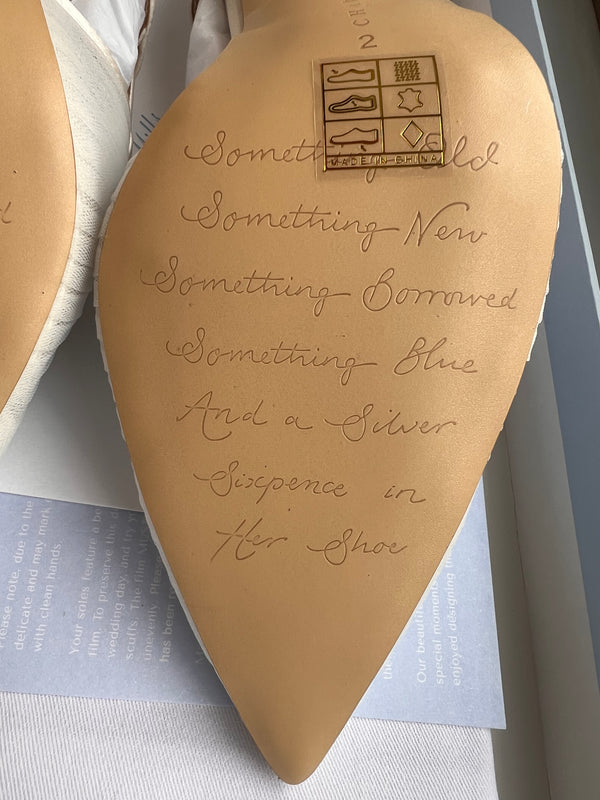 CHI
2
Something Old
MADE IN CHINA
Something New
Something Borrowed
Something Blue
And a Silver
Sixpence in
Her Shoe
Please note, due to the
delicate and may mark
with clean hands.
Your soles feature a
film. To preserve this
wedding day, and try
scuffs. The film
unevenly.
has been
Our beautiful
special moments
enjoyed designing